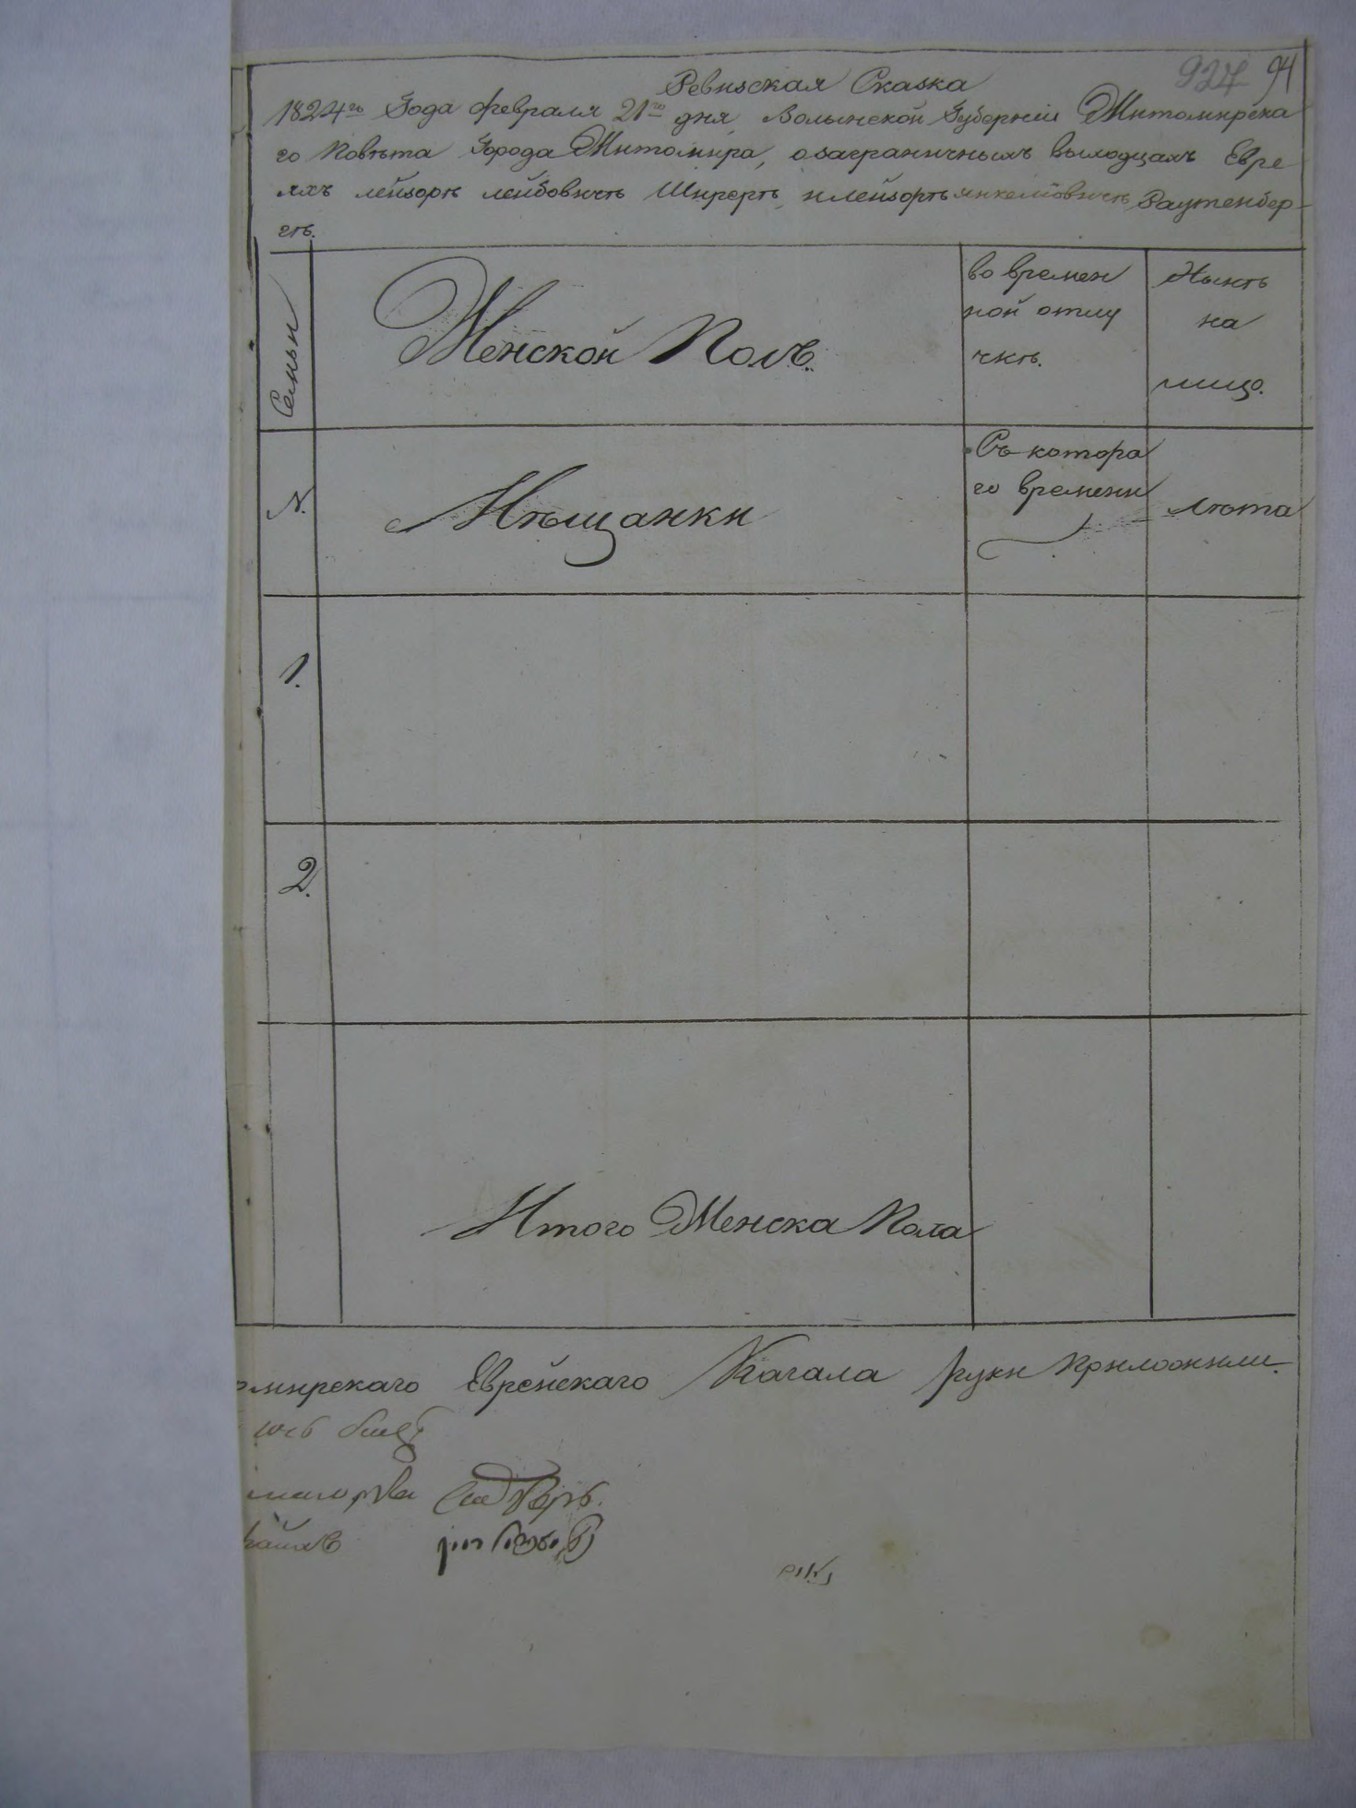 927 94
Ревизская Сказка
1824го Года февраля 21го дня, Волынской Губернии Житомирска
го Повѣта Города Житомира, о заграничныхъ выходцахъ Евре
яхъ лейзорѣ лейбовичѣ Ширерѣ, и лейзорѣ янкелiовичѣ Раутенбер
гѣ.
Семьи
Женской Полъ.
во времен
ной отлу
чкѣ.
Нынѣ
на
лицо.
№.
Мѣщанки
Съ котора
го времени
лѣта
1.
2.
Итого Женска Пола
омирскаго Еврейскаго Кагала руки приложили.